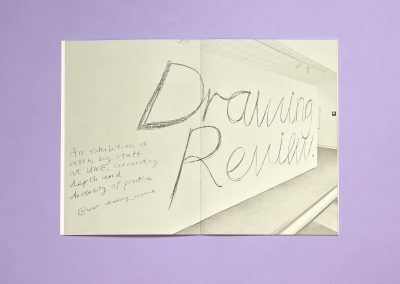 Drawing
Review.
An exhibition of
work by staff
at UWE, celebrating
depth and
diversity of practice